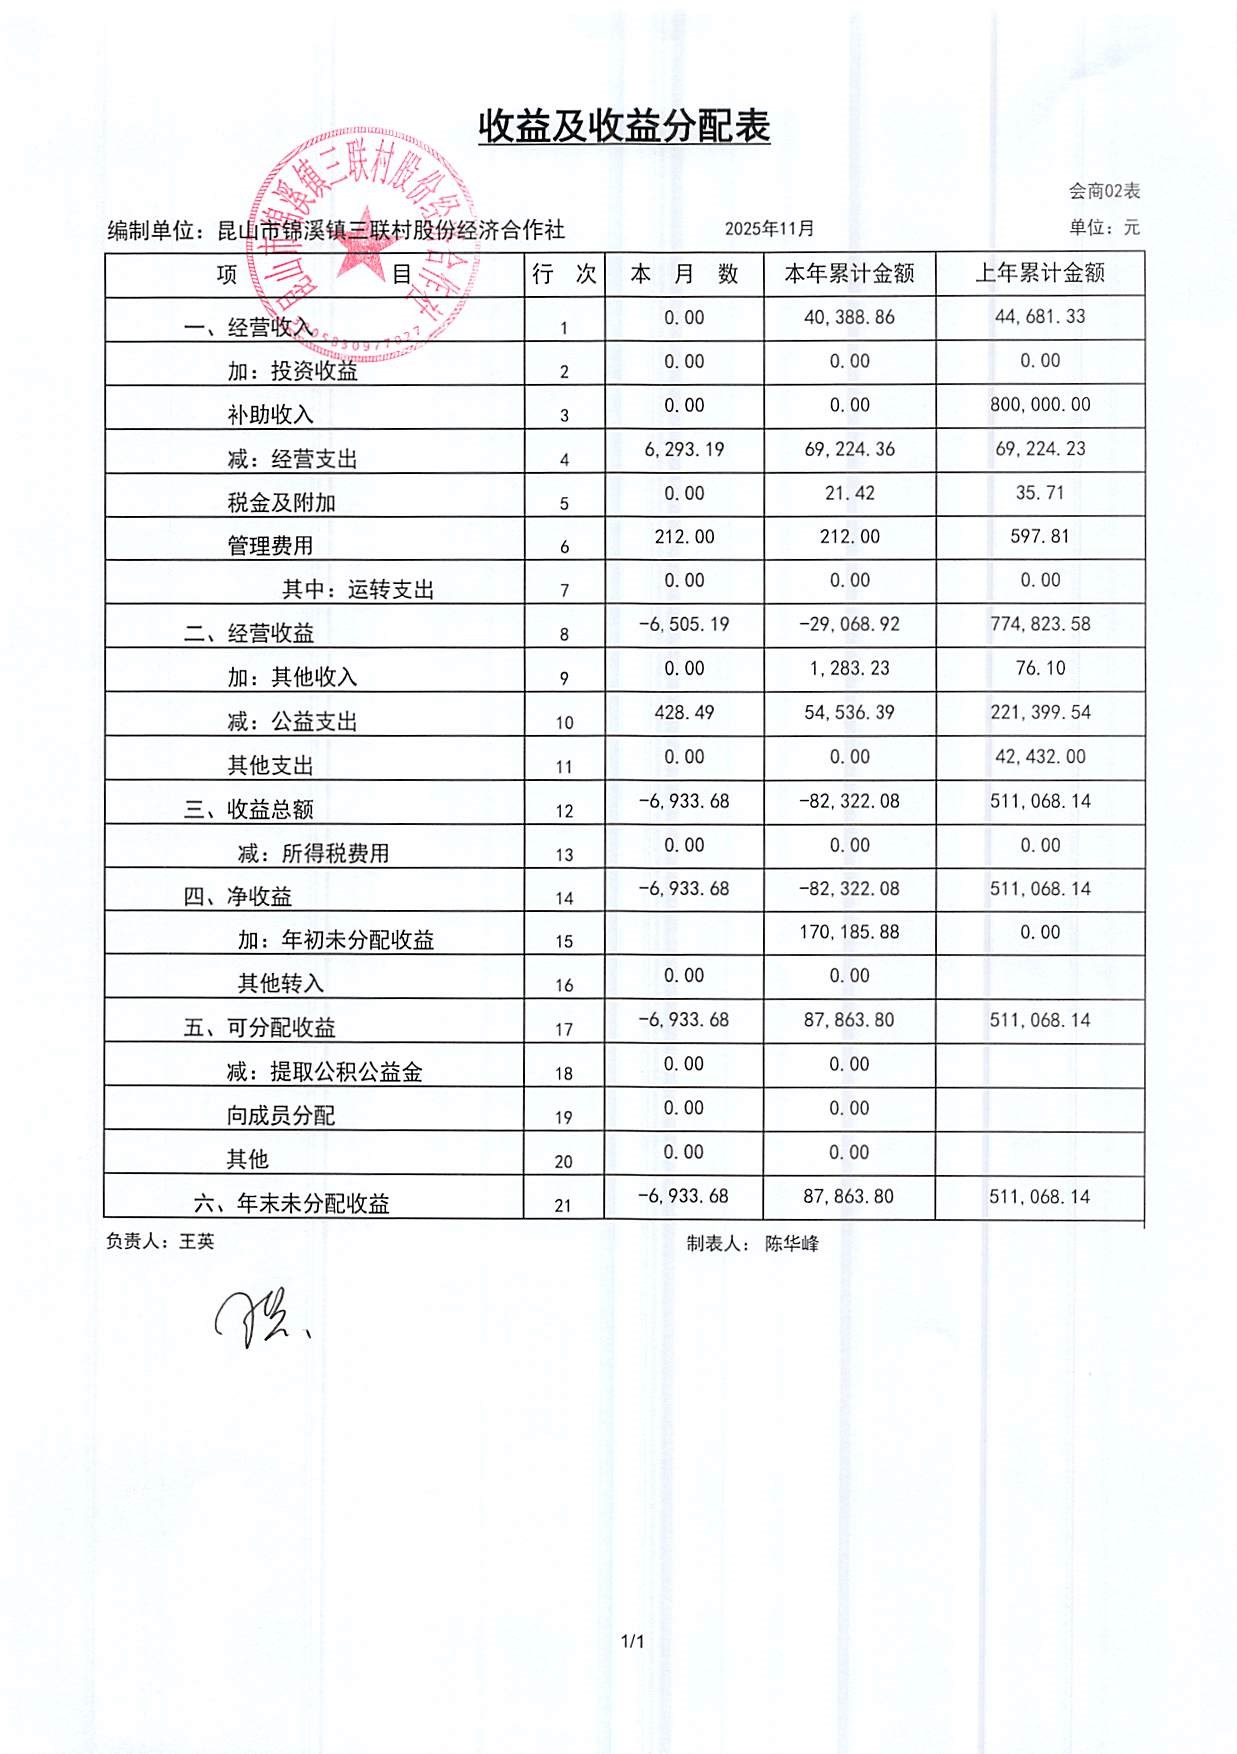 收益及收益分配表
会商02表
编制单位：昆山市锦溪镇三联村股份经济合作社 2025年11月 单位：元
项 目 行 次 本 月 数 本年累计金额 上年累计金额
一、经营收入 1 0.00 40,388.86 44,681.33
加：投资收益 2 0.00 0.00 0.00
补助收入 3 0.00 0.00 800,000.00
减：经营支出 4 6,293.19 69,224.36 69,224.23
税金及附加 5 0.00 21.42 35.71
管理费用 6 212.00 212.00 597.81
其中：运转支出 7 0.00 0.00 0.00
二、经营收益 8 -6,505.19 -29,068.92 774,823.58
加：其他收入 9 0.00 1,283.23 76.10
减：公益支出 10 428.49 54,536.39 221,399.54
其他支出 11 0.00 0.00 42,432.00
三、收益总额 12 -6,933.68 -82,322.08 511,068.14
减：所得税费用 13 0.00 0.00 0.00
四、净收益 14 -6,933.68 -82,322.08 511,068.14
加：年初未分配收益 15 170,185.88 0.00
其他转入 16 0.00 0.00
五、可分配收益 17 -6,933.68 87,863.80 511,068.14
减：提取公积公益金 18 0.00 0.00
向成员分配 19 0.00 0.00
其他 20 0.00 0.00
六、年末未分配收益 21 -6,933.68 87,863.80 511,068.14
负责人：王英 制表人： 陈华峰
1/1
昆山市锦溪镇三联村股份经济合作社